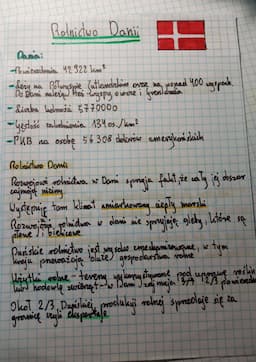 Rolnictwo Danii
Dania:
- Powierzchnia 42 922 km²
- Leży na Półwyspie Jutlandzkim oraz na ponad 400 wyspach.
Do Danii należą też wyspy owcze i Grenlandia
- Liczba ludności 5770000
- Gęstość zaludnienia 134 os./km²
- PKB na osobę 56 308 dolarów amerykańskich
Rolnictwo Danii
Rozwojowi rolnictwa w Danii sprzyja fakt, że cały jej obszar
zajmują niziny
Występuje tam klimat umiarkowany ciepły morski
Rozwojowi rolnictwa w danii nie sprzyjają gleby, które są
płowe i bielicowe
Duńskie rolnictwo jest wysoko zmechanizowane, w tym
kraju przeważają duże gospodarstwa rolne
Użytki rolne - tereny wykorzystywane pod uprawę roślin
lub hodowlę zwierząt - w Danii zajmują
Okoł 2/3 Duńskiej produkcji rolnej sprzedaje się za
granicę czyli eksportuje.